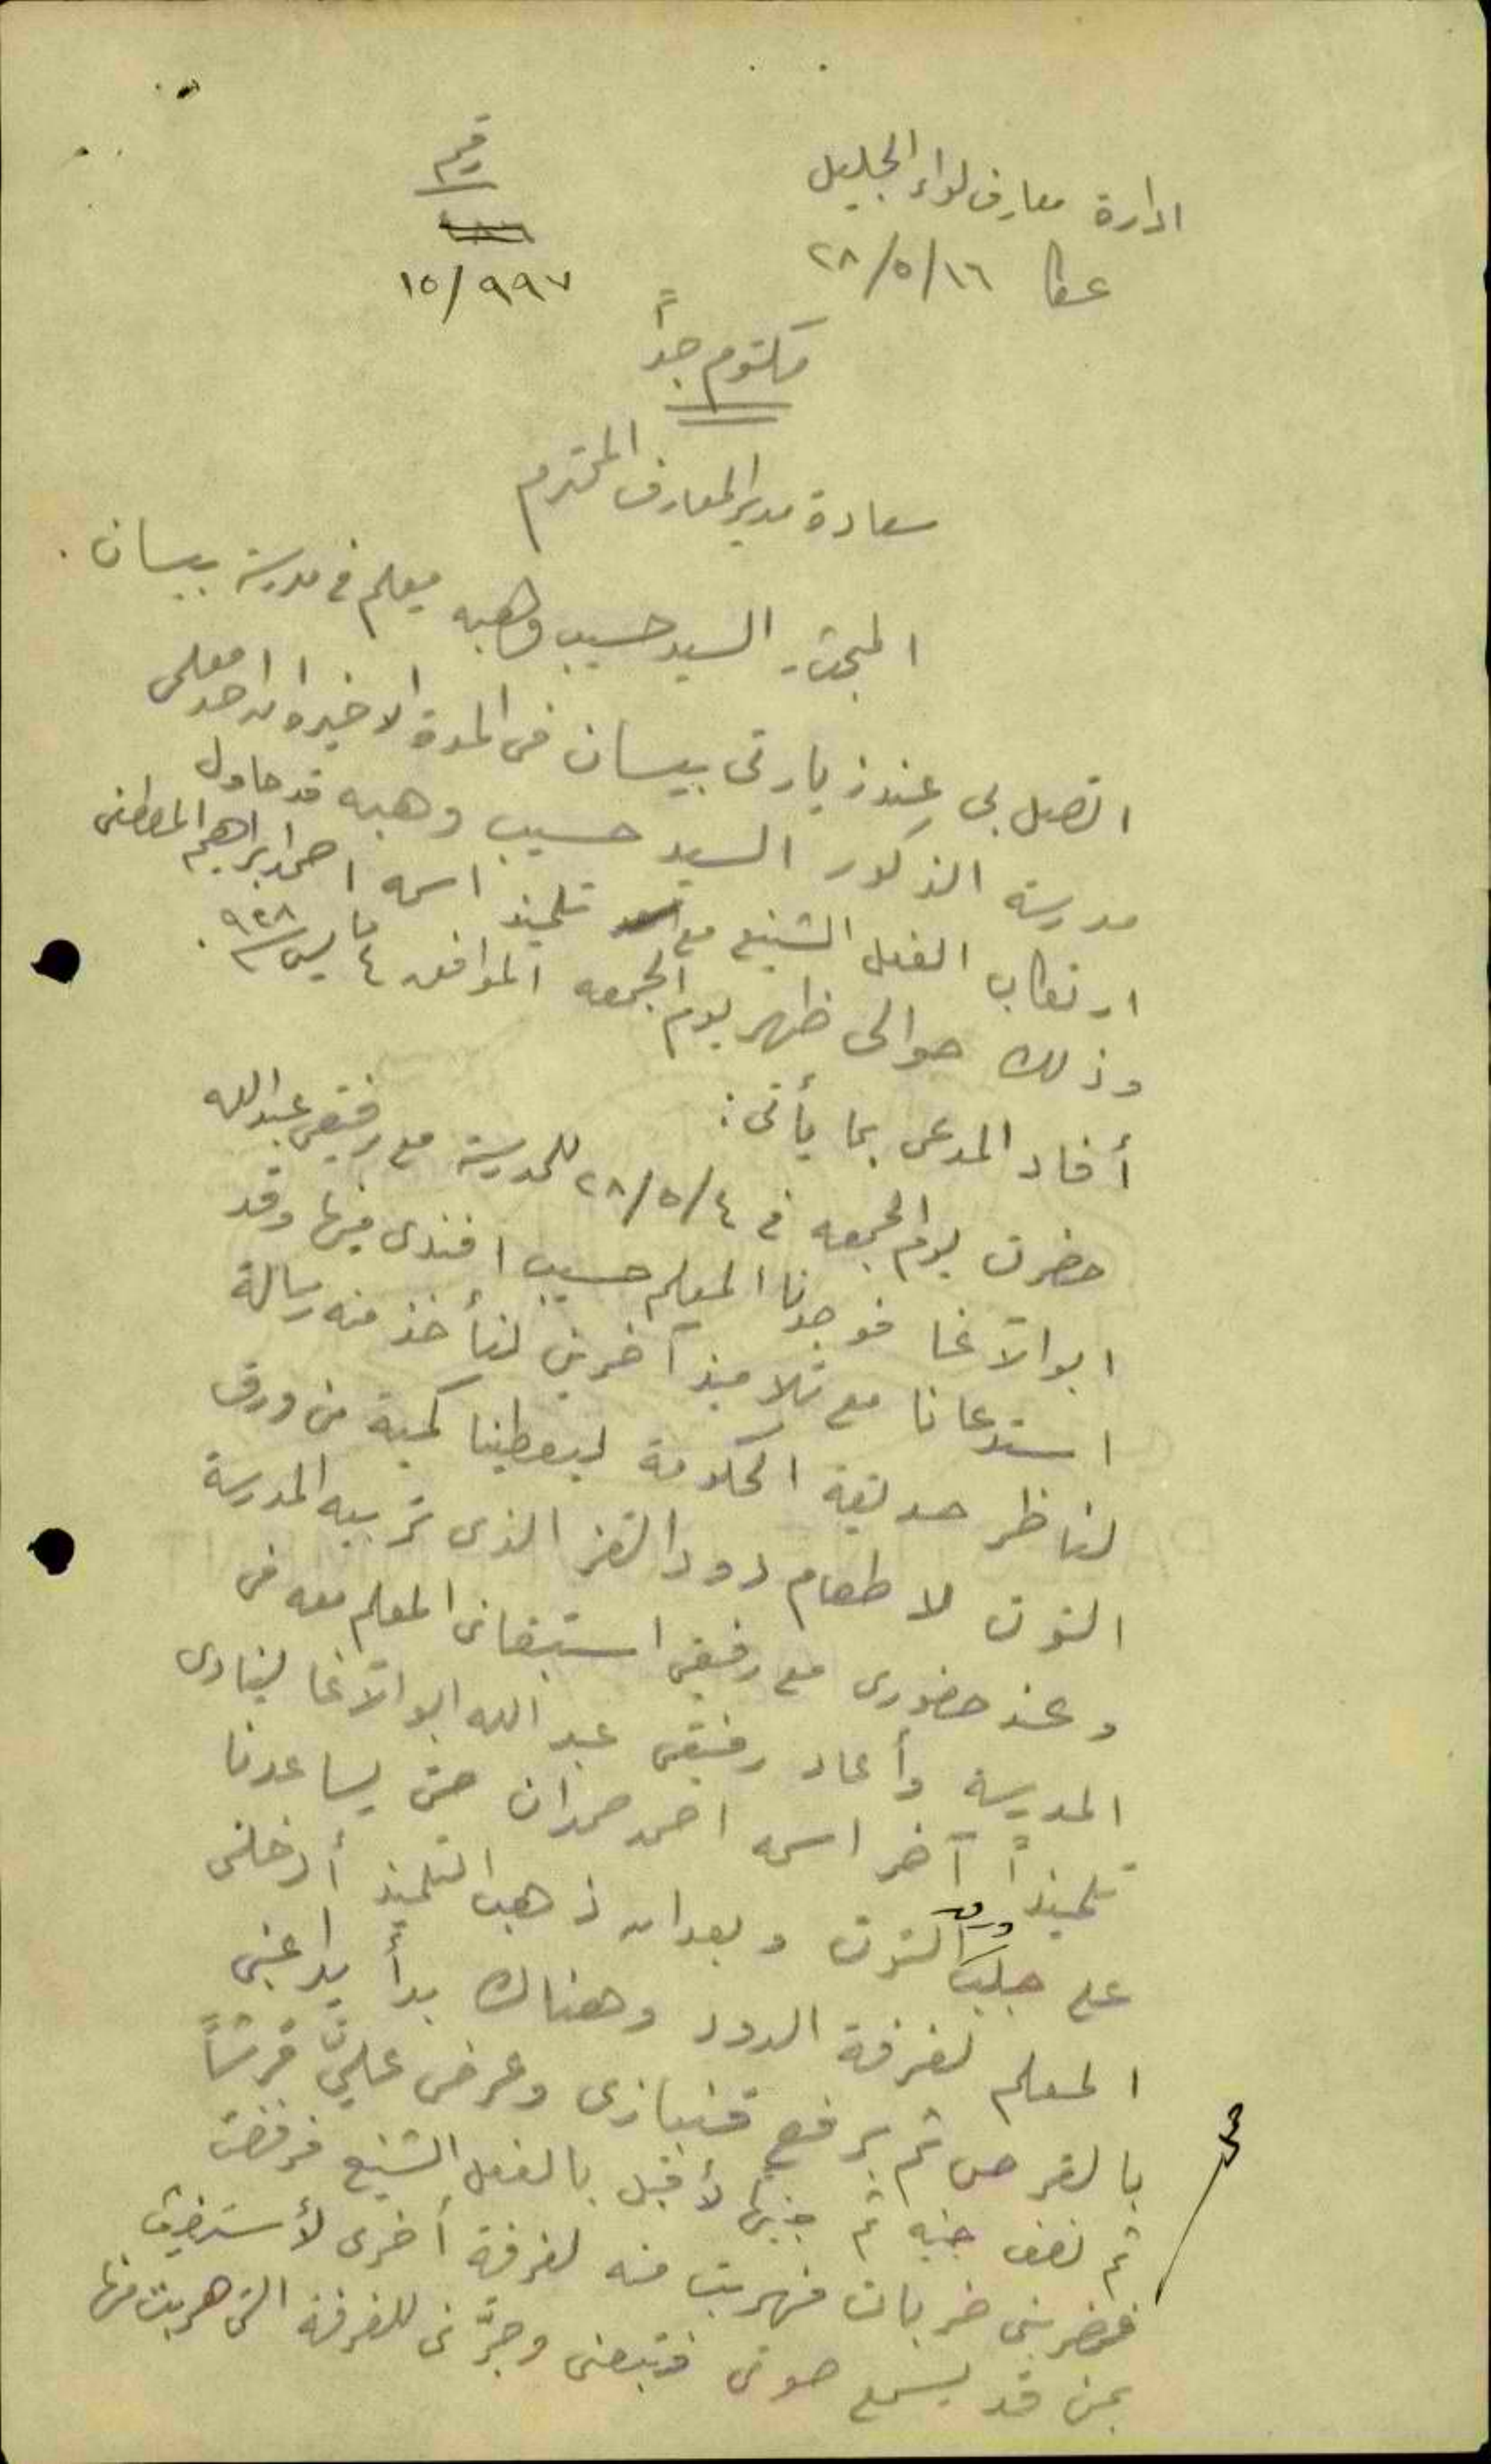 ادارة معارف لواء الجليل
عكا ١٦/٥/٢٨
رقم
١٥/٩٩٧
مكتوم جداً
سعادة مدير المعارف المحترم
المبحث. السيد حسيب وهبه معلم في مدرسة بيسان.
اتصل بي عند زيارتي بيسان في المدة الاخيرة ان احد معلمي
مدرسة الذكور السيد حسيب وهبه قد حاول
ارتكاب الفعل الشنيع مع تلميذ اسمه احمد ابراهيم المصطفى
وذلك حوالى ظهر يوم الجمعه الموافق ٤ مايس ٩٢٨.
أفاد المدعى بما يأتى:
حضرت يوم الجمعه في ٤/٥/٢٨ للمدرسة مع رفيقى عبد الله
ابو الآغا فوجدنا المعلم حسيب افندى فيها وقد
استدعانا مع تلاميذ آخرين لنأخذ منه رسالة
لناظر حديقة الحكومة ليعطينا كمية من ورق
التوت لاطعام دود القز الذى تربيه المدرسة
وعند حضورى مع رفيقى استبقانى المعلم معه فى
المدرسة وأعاد رفيقى عبد الله ابو الآغا لينادى
تلميذاً آخر اسمه احمد حمدان حتى يساعدنا
على جلب ورق التوت وبعد ان ذهب التلميذ أدخلنى
المعلم لغرفة الدود وهناك بدأ يداعبنى
بالقرص ثم برفع قنبازى وعرض عليَّ قرشاً
ثم نصف جنيه ثم جنيهاً لأقبل بالفعل الشنيع فرفضت
فضربنى ضربات فهربت منه لغرفة أخرى لأستغيث
بمن قد يسمع صوتى فتبعنى وجرَّنى للغرفة التى هربت منها